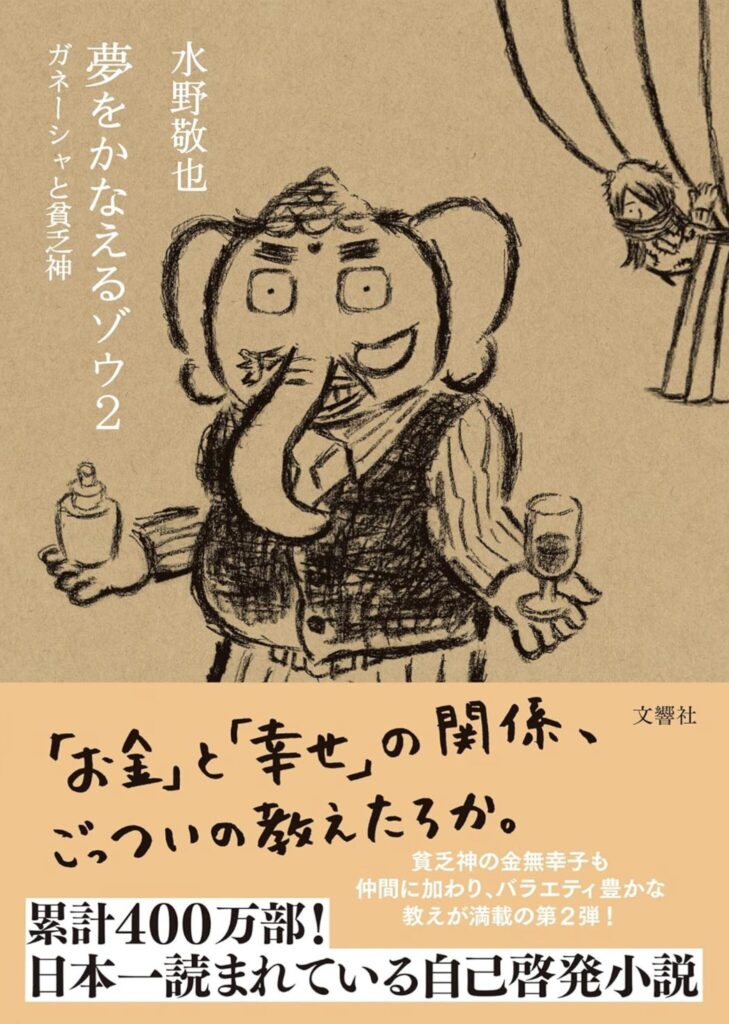 水野敬也
夢をかなえるゾウ2
ガネーシャと貧乏神
文響社
「お金」と「幸せ」の関係、
ごっついの教えたろか。
貧乏神の金無幸子も
仲間に加わり、バラエティ豊かな
教えが満載の第2弾！
累計400万部！
日本一読まれている自己啓発小説